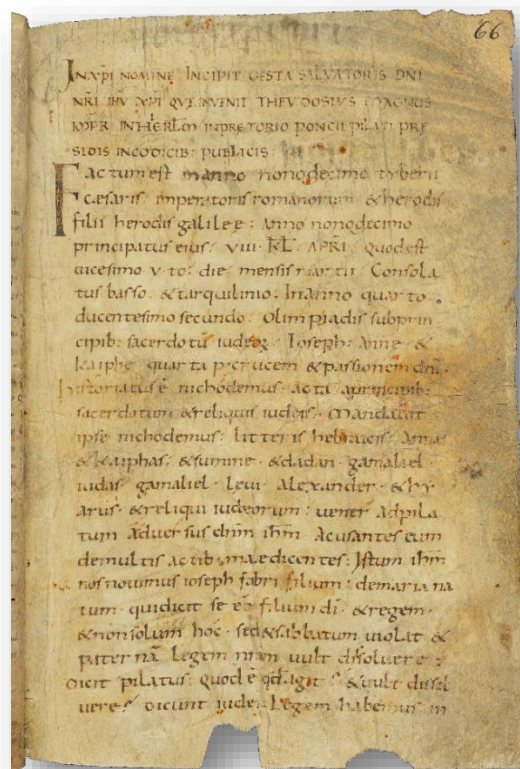 66
IN XPI NOMINE INCIPIT GESTA SALVATORIS DNI
NRI IHV XPI QVE INVENIT THEVDOSIVS MAGNUS
IMPR IN HIERLM IN PRETORIO PONCII PILATI PRE
SIDIS IN CODICIB: PUBLICIS
Factum est in anno nonodecimo tyberii
cesaris imperatoris romanorum & herodis
filii herodis galileę: Anno nonodecimo
principatus eius: VIII KL APRI quodest
uicesimo v to: die mensis martii Consola
tus basso: & tarquilinio: In anno quarto
ducentesimo secundo: Olimpiadis subprin
cipib: sacerdotū iudeoꝝ: Ioseph: Anne &
Kaiphe quarta p crucem & passionem dni
historiatus ē nichodemus: acta aprincipib:
sacerdotum & reliquis iudeis: Mandauit
ipse nichodemus: litteris hebraicis: Annas
& kaiphas & summe & dadan gamaliel
iudas gamaliel leui Alexander & hy
arus & reliqui iudeorum: uener adpila
tum aduersus dnm ihm Acusantes eum
demultis actib: maledicentes: Istum ihm
nos nouimus ioseph fabri filium: demaria na
tum quidicit se eē filium dī & regem
& nonsolum hoc sed & sabbatum uiolat &
paternā legem nram uult dissoluere:
Dicit pilatus: quod ē qd agit & uult dissol
uere Dicunt iudei Legem habemus in